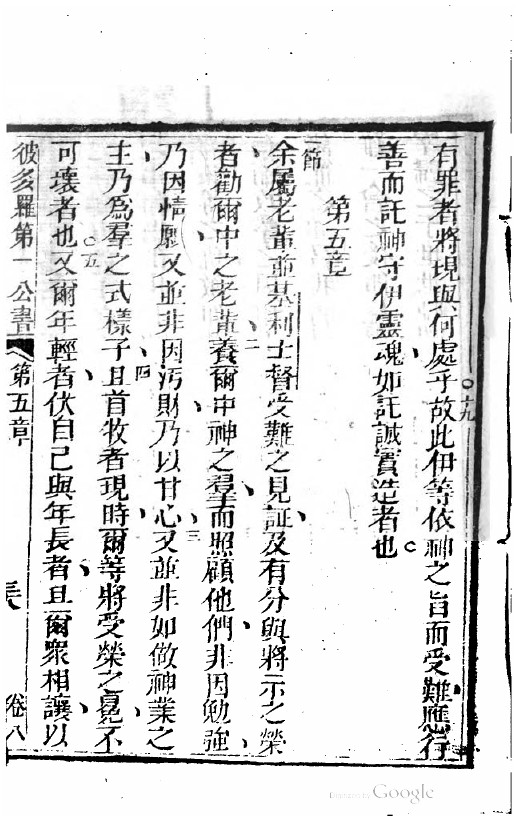 有罪者將現與何處乎○十九故此伊等依神之旨而受難應行
善而託神守伊靈魂如託誠實造者也
第五章
一節余屬老輩並基利士督受難之見証及有分與將示之榮
者勸爾中之老輩二養爾中神之羣而照顧他們非因勉強
乃因情愿又並非因污財乃以甘心三又並非如做神業之
主乃為羣之式樣子四且首牧者現時爾等將受榮之冕不
可壞者也○五又爾年輕者伏自己與年長者且爾眾相讓以
彼多羅第一公書 第五章 卷八
Google